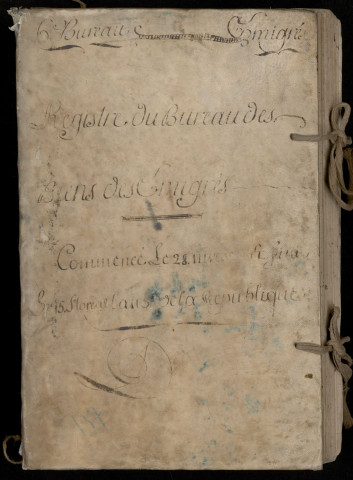 6e Bureau Emigrés
Registre du Bureau des
Biens des Emigrés
Commencé Le 28 et fini
Le 15 l'an de la Republique